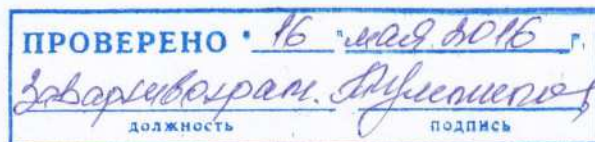 ПРОВЕРЕНО "16" мая 2016 г.
Завархивохран.
должность подпись